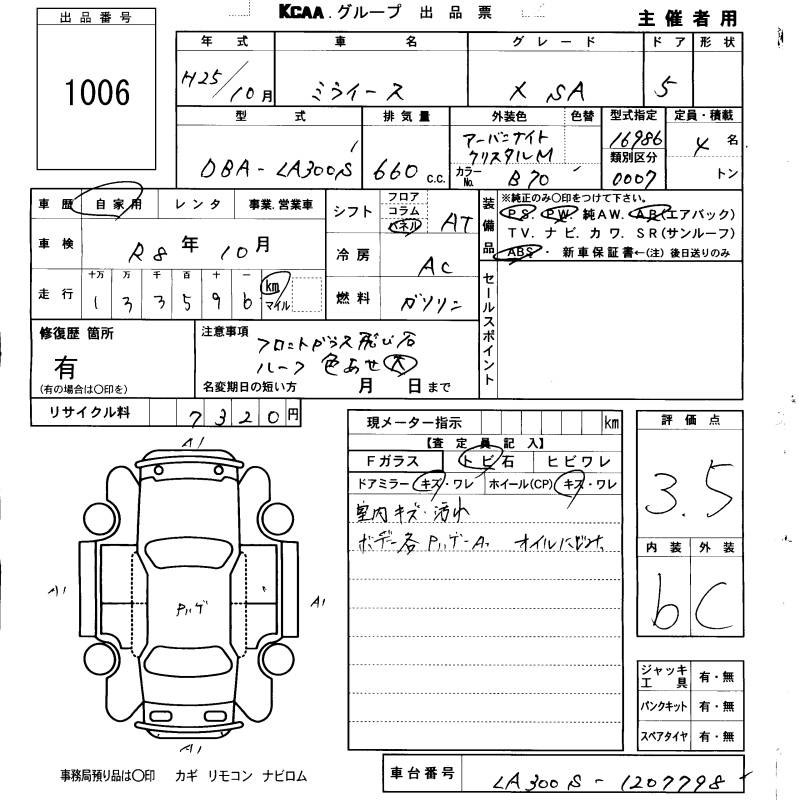 出品番号
1006
KCAA.グループ 出品票
主催者用
年式 車名 グレード ドア 形状
H25/10月 ミライース X SA 5
型式 排気量 外装色 色替 型式指定 定員・積載
DBA-LA300S 660 c.c. アーバンナイト クリスタルM 16986 4 名
カラーNo. B70 類別区分 0007 トン
車歴 自家用 レンタ 事業.営業車
車検 R8年10月
走行 十万 万 千 百 十 一
1 3 3 5 9 6 km マイル
シフト フロア コラム パネル AT
冷房 AC
燃料 ガソリン
装備品 ※純正のみ〇印をつけて下さい。
PS PW 純AW. AB(エアバック)
TV. ナビ. カワ. SR(サンルーフ)
ABS・ 新車保証書←(注) 後日送りのみ
セールスポイント
修復歴 箇所
有
(有の場合は〇印を)
注意事項
フロントガラス飛び石
ルーフ 色あせ 大
名変期日の短い方 月 日まで
リサイクル料 7320円
現メーター指示 km
【査定員記入】
Fガラス トビ石 ヒビワレ
ドアミラー キズ・ワレ ホイール(CP) キズ・ワレ
室内キズ・汚れ
ボデー各 Pハゲ-A. オイルにじみ
評価点
3.5
内装 外装
b C
ジャッキ工具 有・無
パンクキット 有・無
スペアタイヤ 有・無
A1
A1
Pハゲ
A1
A1
事務局預り品は〇印 カギ リモコン ナビロム
車台番号 LA300S-1207798